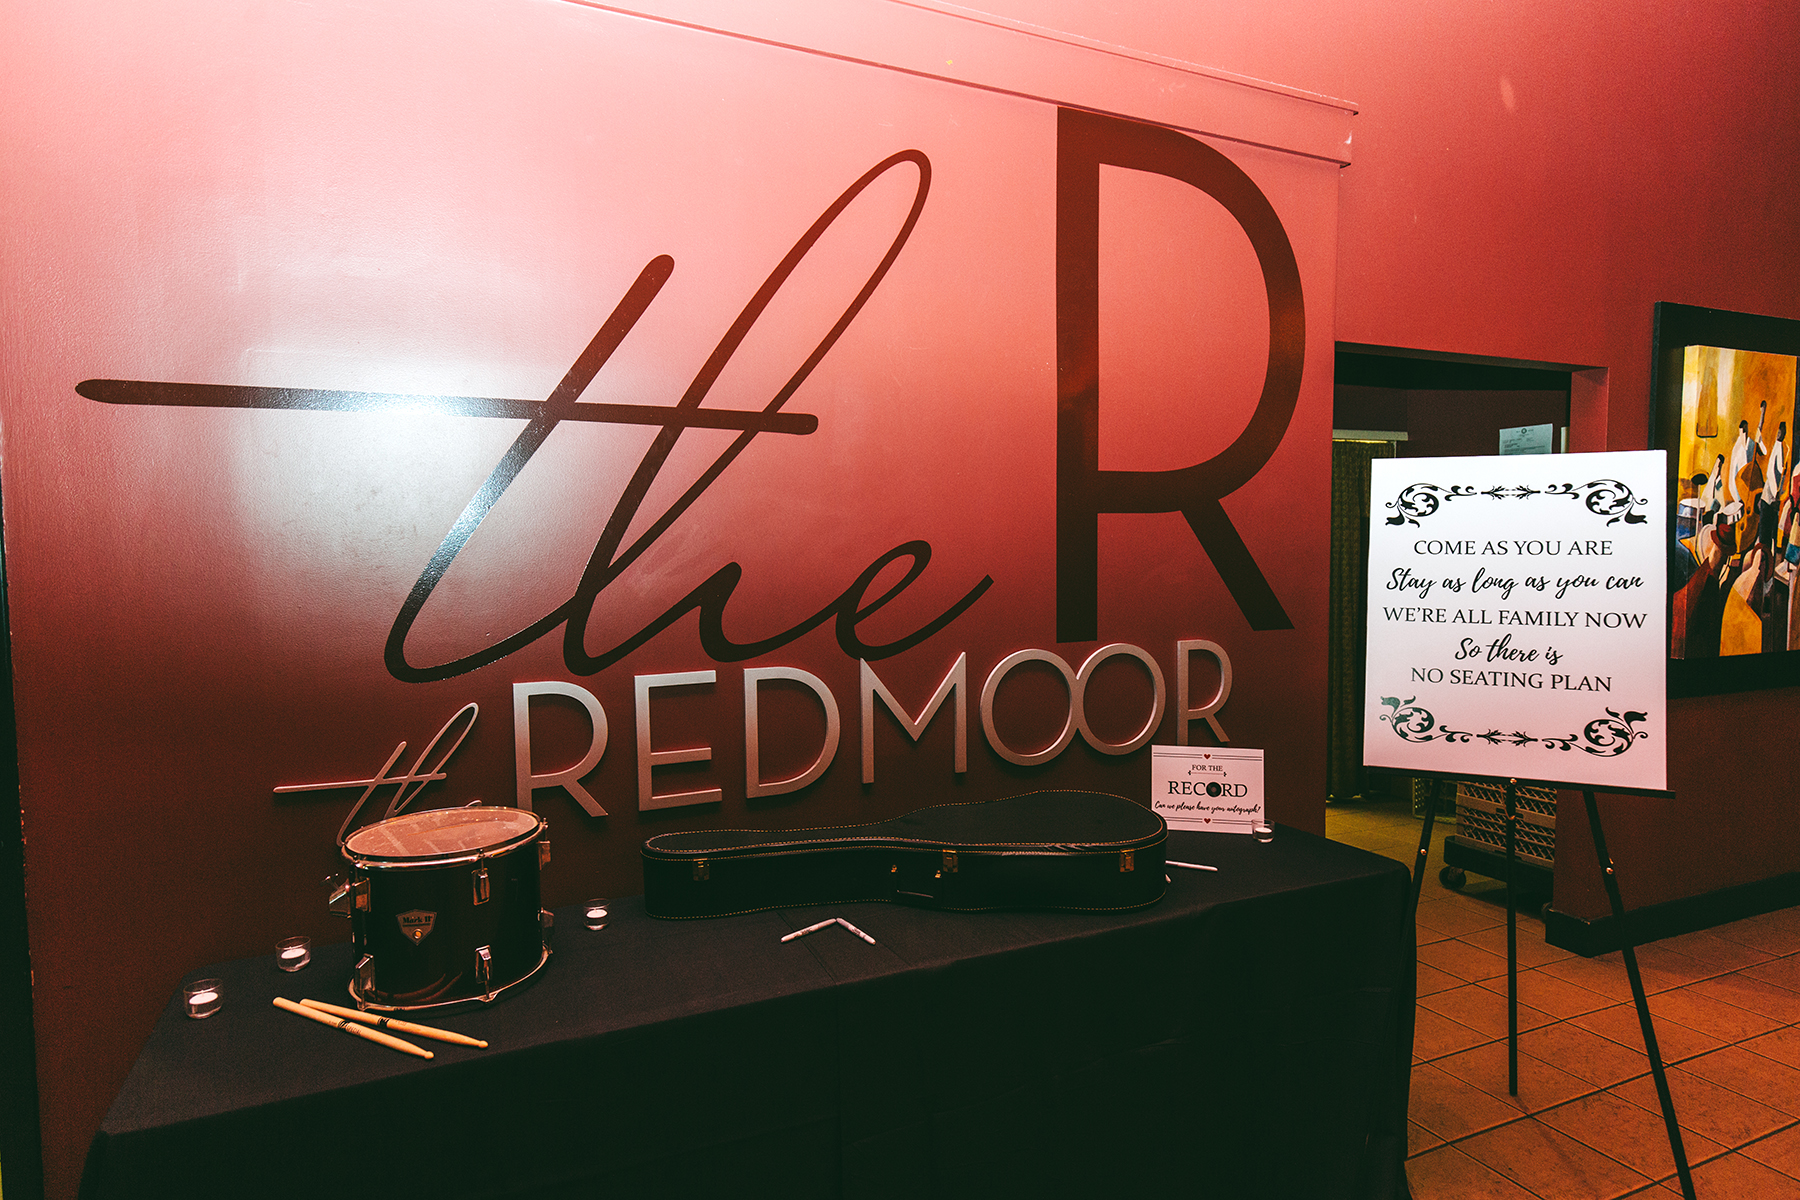 the R
the REDMOOR
COME AS YOU ARE
Stay as long as you can
WE'RE ALL FAMILY NOW
So there is
NO SEATING PLAN
FOR THE
RECORD
Can we please have your autograph?
Mark II